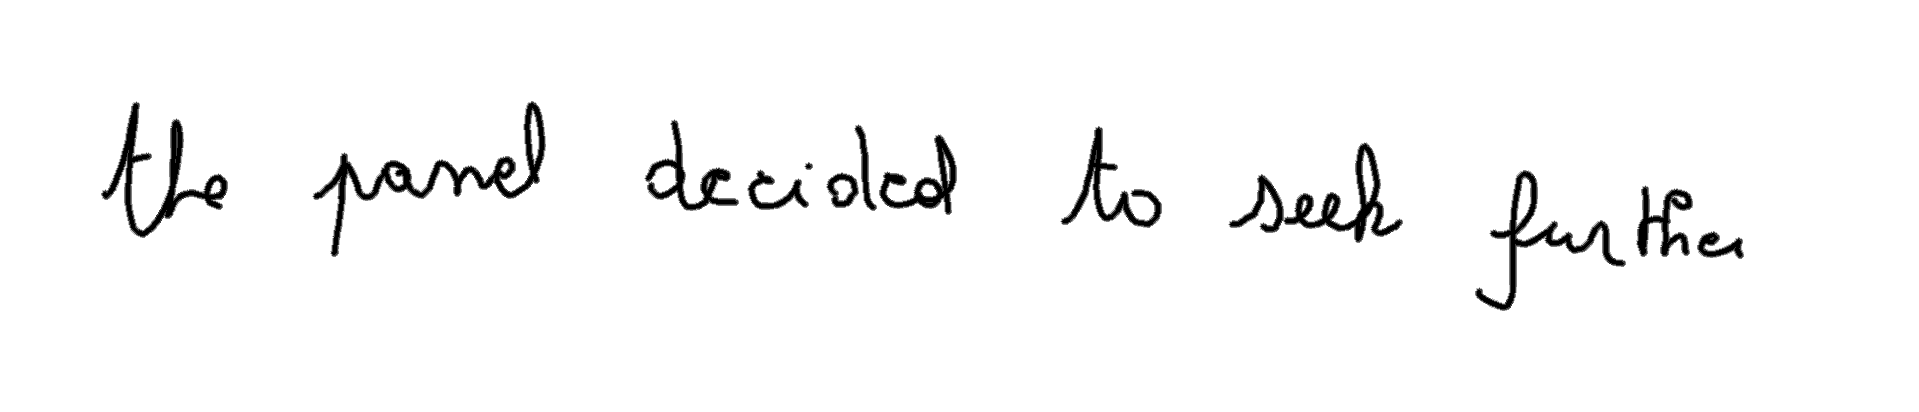 the panel decided to seek further